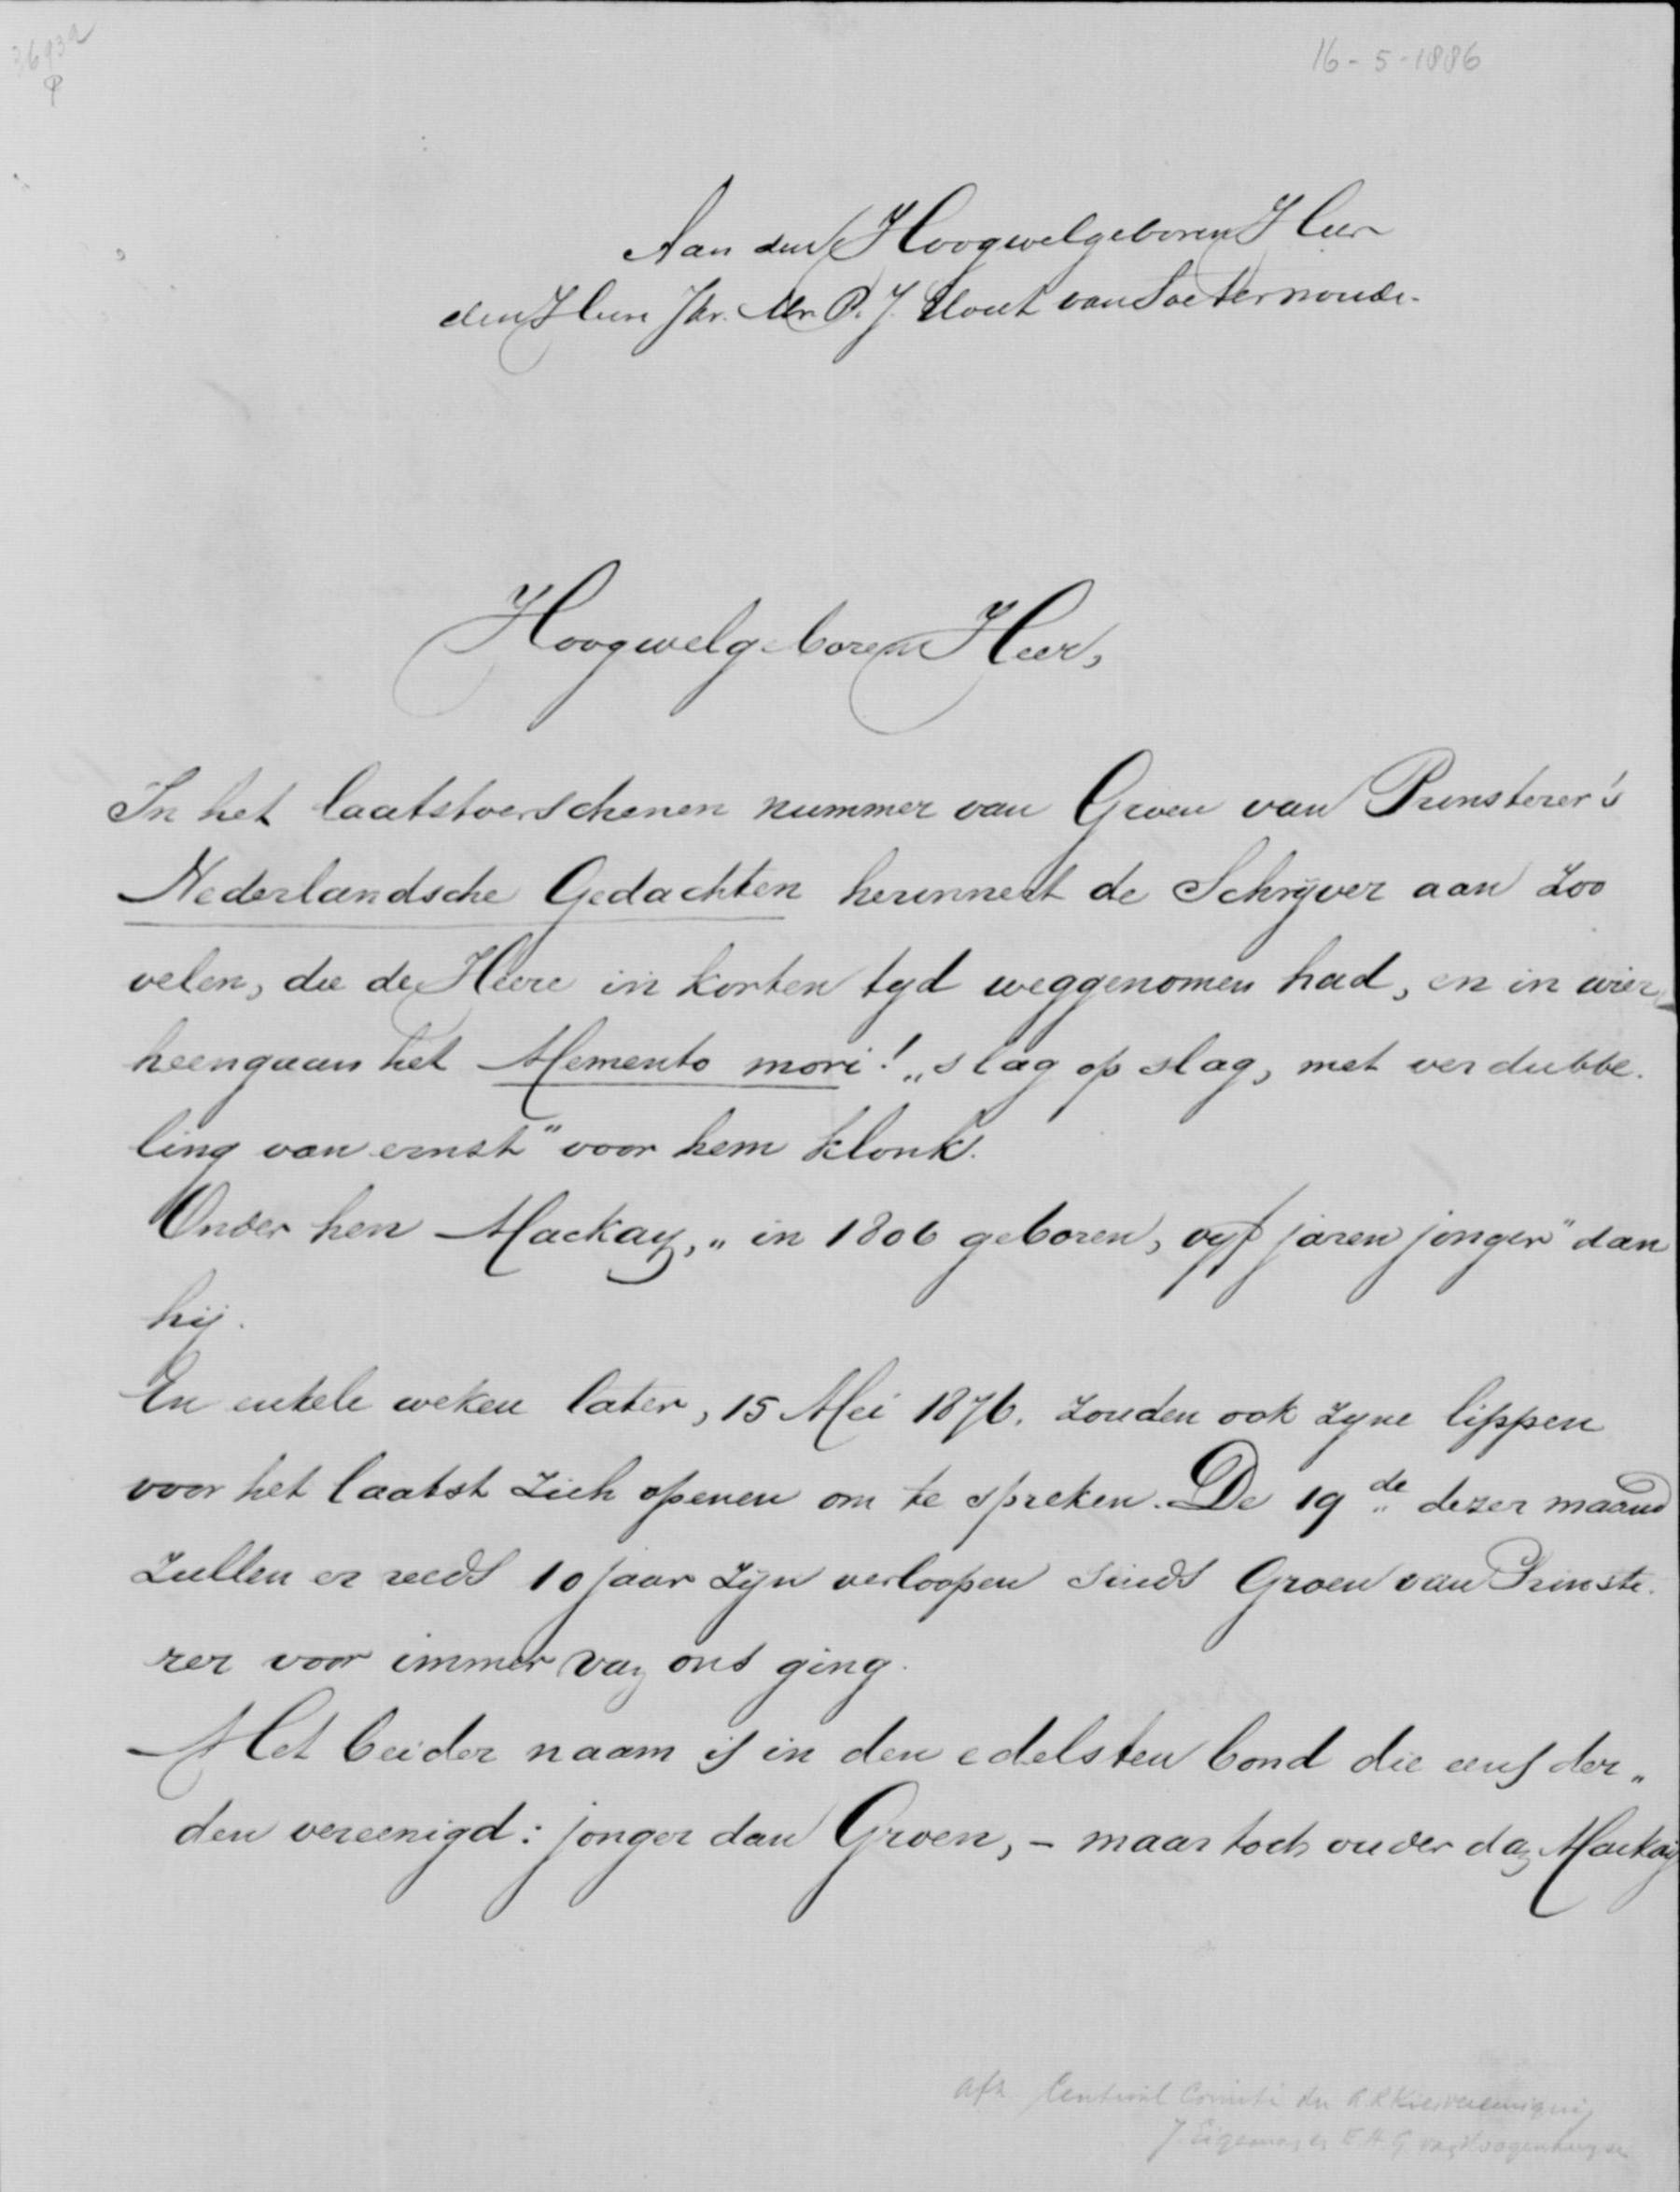 3693a
16-5-1886
Aan den Hoogwelgeboren Heer
den Heere Jhr. Mr. P. J. Elout van Soeterwoude.
Hoogwelgeboren Heer,
In het laatstverschenen nummer van Groen van Prinsterer's
Nederlandsche Gedachten herinnert de Schrijver aan zoo
velen, die de Heere in korten tyd weggenomen had, en in wier
heengaan het Memento mori! „slag op slag, met verdubbe-
ling van ernst" voor hem klonk.
Onder hen Mackay, „in 1806 geboren, vyf jaren jonger" dan
hij.
En enkele weken later, 15 Mei 1876. zouden ook zyne lippen
voor het laatst zich openen om te spreken. De 19de dezer maand
zullen er reeds 10 jaar zyn verloopen sinds Groen van Prinste-
rer voor immer van ons ging.
Met beider naam is in den edelsten bond die eens der„
den vereenigd: jonger dan Groen, - maar toch ouder dan Mackay
afz. Centraal Comité der A.R. Kiesvereeniging
J. Eigeman en E.A.G. van Hoogenhuyze